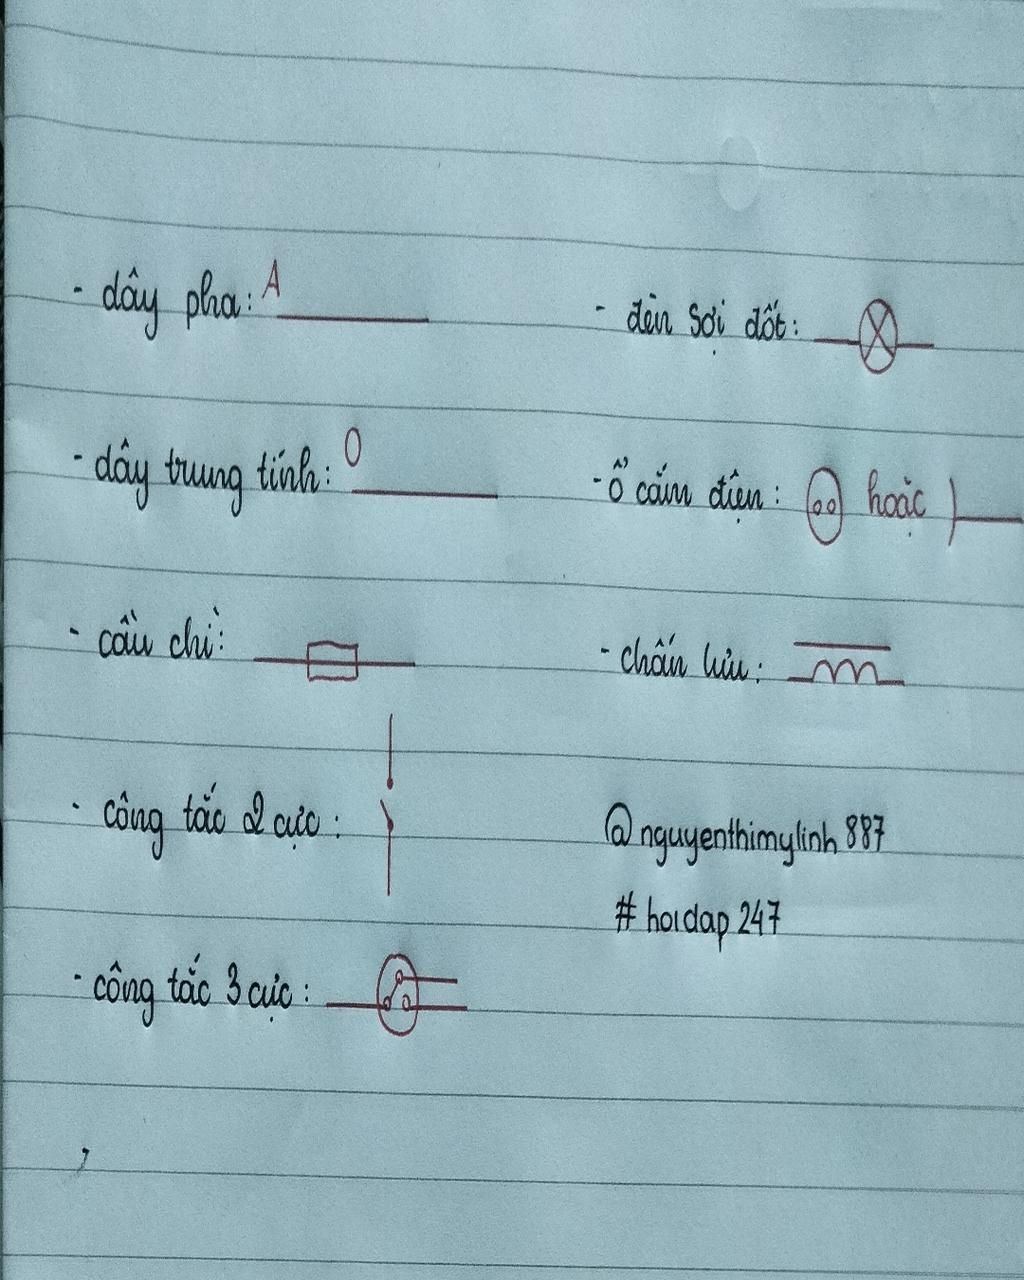 - dây pha: A
- dây trung tính: O
- cầu chì:
- công tắc 2 cực:
- công tắc 3 cực:
- đèn sợi đốt:
- ổ cắm điện: hoặc
- chấn lưu:
@nguyenthimylinh887
#hoidap247